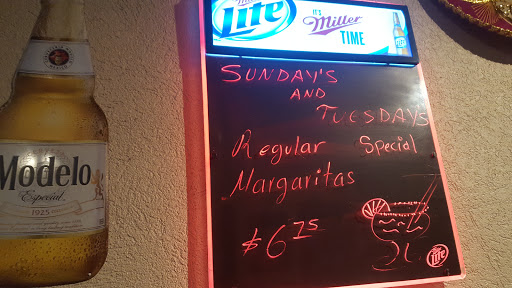 Lite
IT'S
Miller
TIME
SUNDAY'S
AND
TUESDAY'S
Regular Special
Margaritas
$6.75
Lite
Modelo
Especial
1925